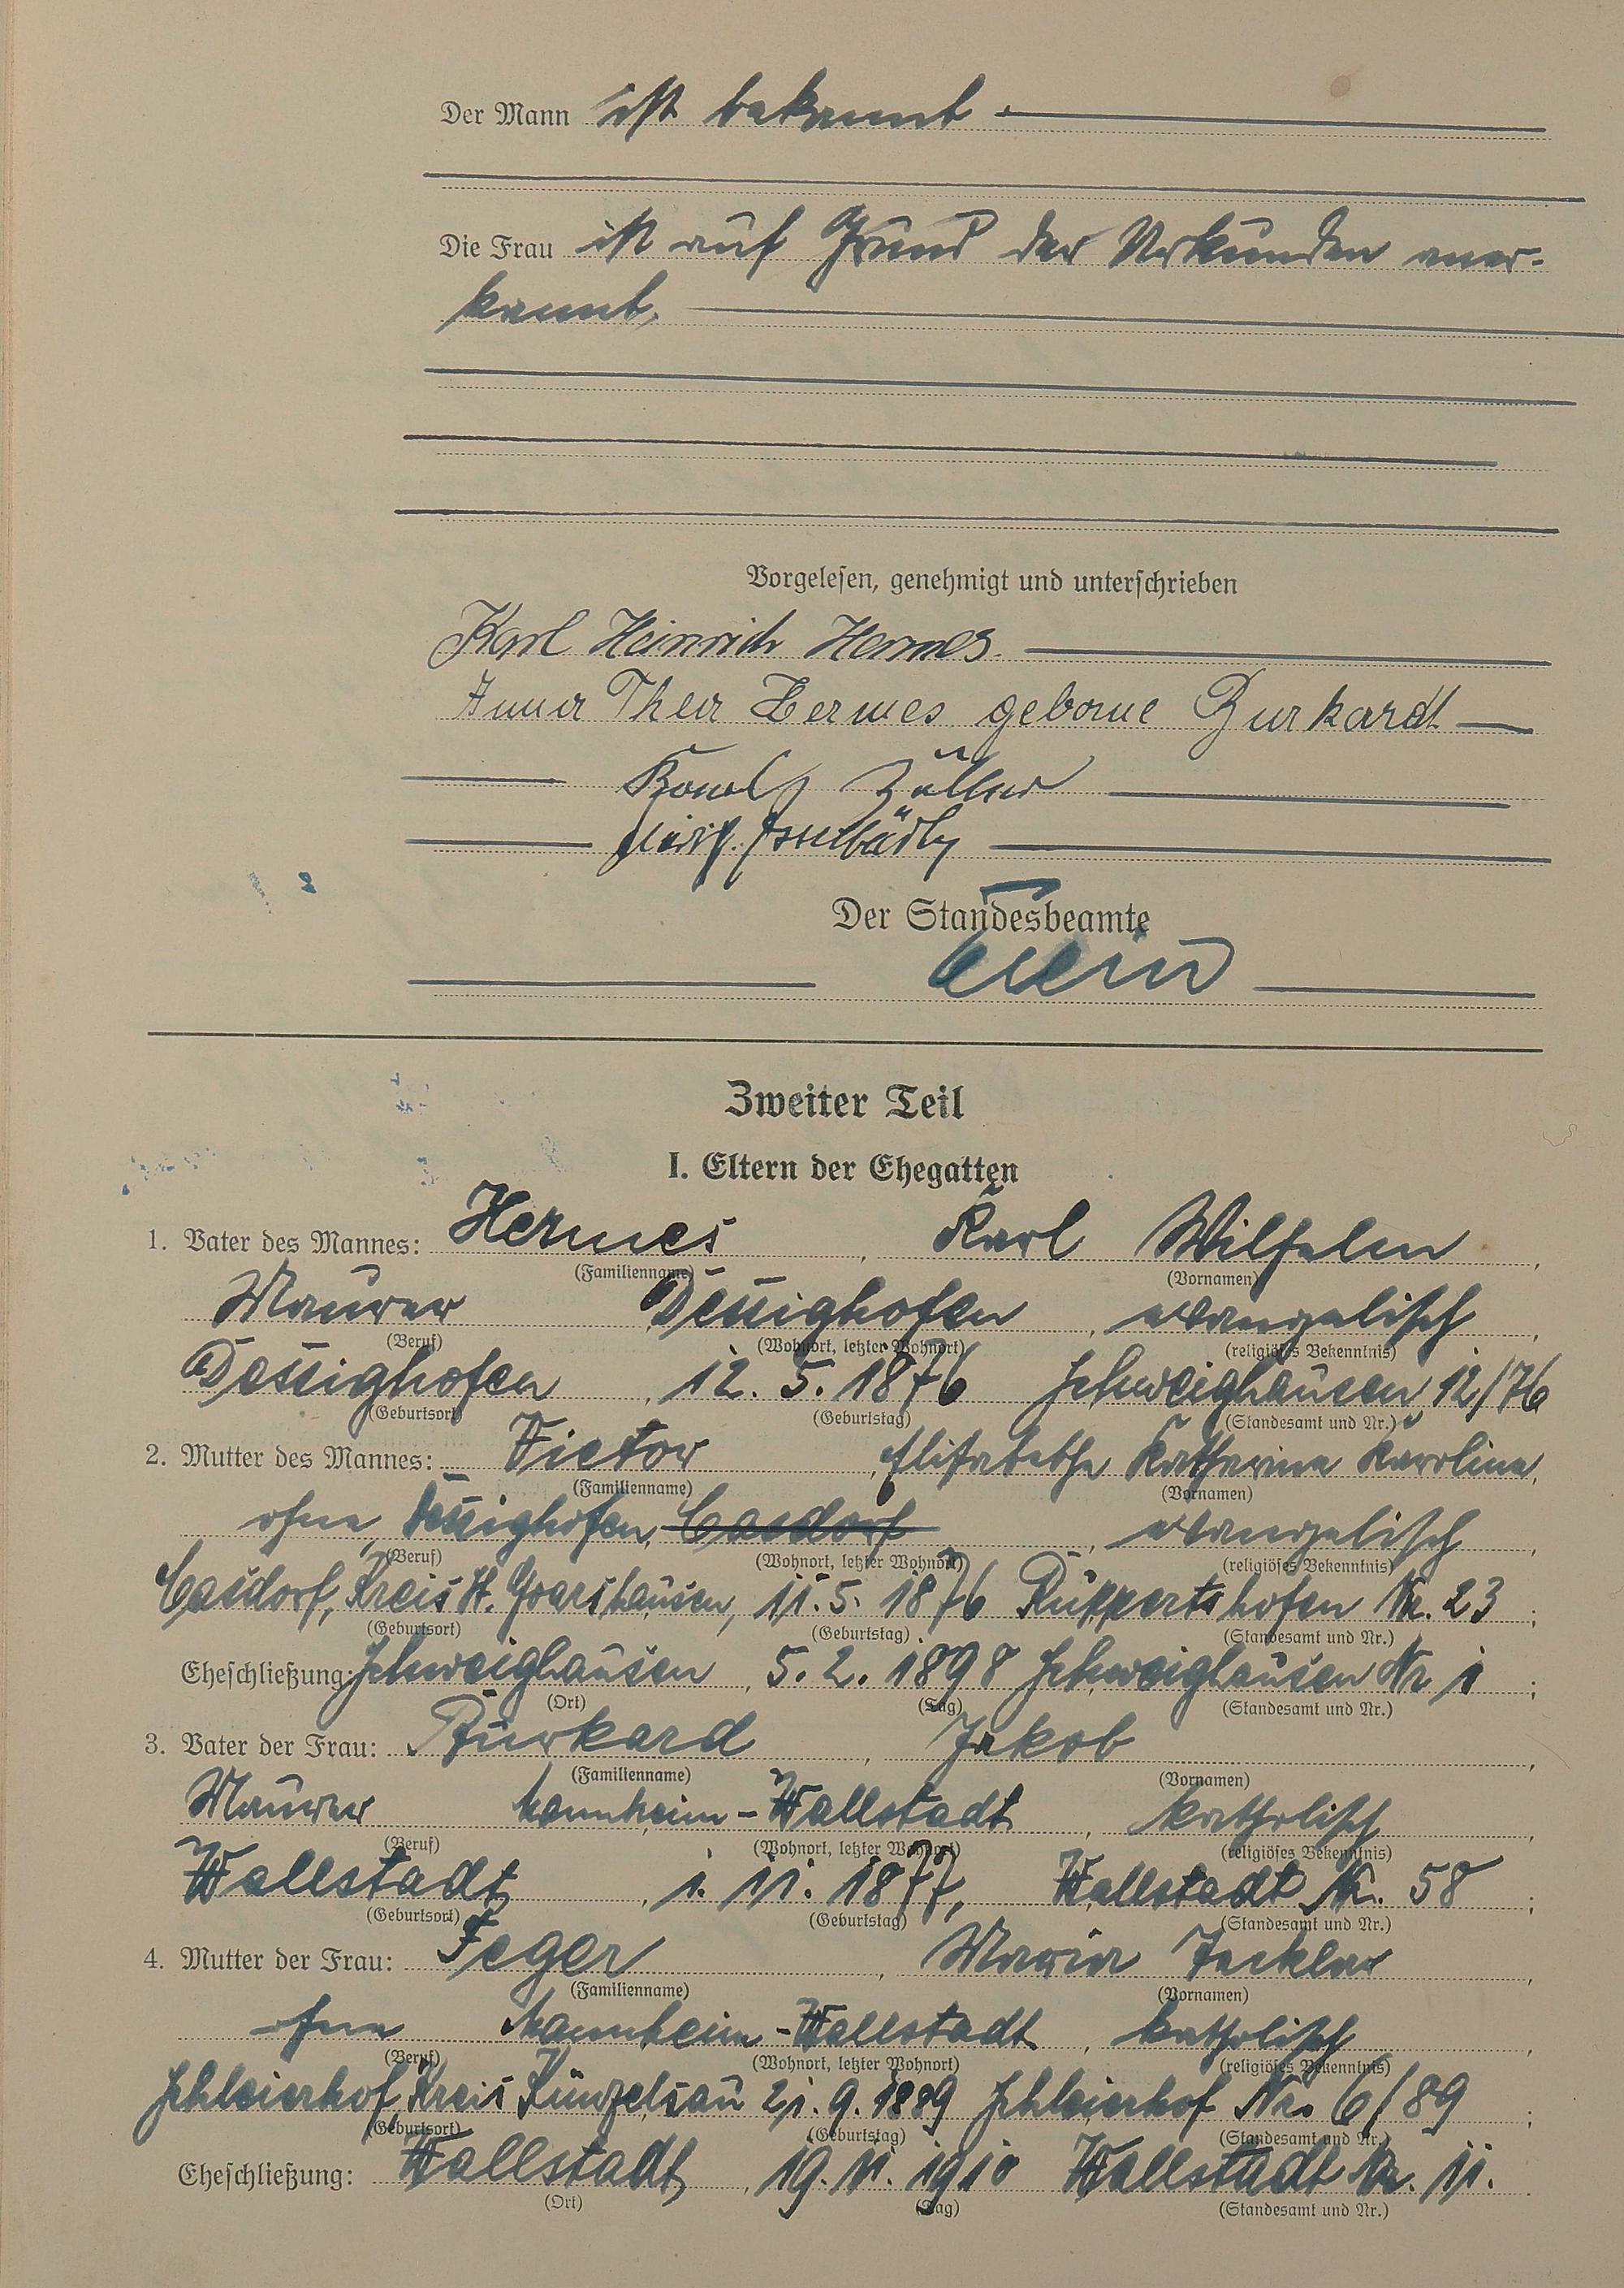 Der Mann ist bekannt.
Die Frau ist auf Grund der Urkunden aner-
kannt.
Vorgelesen, genehmigt und unterschrieben
Karl Heinrich Hermes.
Anna Thea Hermes geborne Burkardt
Züller
Der Standesbeamte
Zweiter Teil
I. Eltern der Ehegatten
1. Vater des Mannes: Hermes, Karl Wilhelm,
(Familienname) (Vornamen)
Maurer Dessighofen, evangelisch,
(Beruf) (Wohnort, letzter Wohnort) (religiöses Bekenntnis)
Dessighofen, 12. 5. 1876 Schweighausen 12/76
(Geburtsort) (Geburtstag) (Standesamt und Nr.)
2. Mutter des Mannes: Victor, Elisabethe Katharina Karoline,
(Familienname) (Vornamen)
ohne, Dessighofen, Casdorf, evangelisch,
(Beruf) (Wohnort, letzter Wohnort) (religiöses Bekenntnis)
Casdorf, Kreis St. Goarshausen, 11. 5. 1876 Ruppertshofen Nr. 23;
(Geburtsort) (Geburtstag) (Standesamt und Nr.)
Eheschließung: Schweighausen, 5. 2. 1898 Schweighausen Nr 1;
(Ort) (Tag) (Standesamt und Nr.)
3. Vater der Frau: Burkard, Jakob,
(Familienname) (Vornamen)
Maurer Mannheim-Wallstadt, katholisch,
(Beruf) (Wohnort, letzter Wohnort) (religiöses Bekenntnis)
Wallstadt, 1. 11. 1877, Wallstadt Nr. 58;
(Geburtsort) (Geburtstag) (Standesamt und Nr.)
4. Mutter der Frau: Feger, Maria,
(Familienname) (Vornamen)
ohne Mannheim-Wallstadt, katholisch,
(Beruf) (Wohnort, letzter Wohnort) (religiöses Bekenntnis)
Schleierhof, Kreis Künzelsau 21. 9. 1889 Schleierhof Nr. 6/89;
(Geburtsort) (Geburtstag) (Standesamt und Nr.)
Eheschließung: Wallstadt, 19. 11. 1910 Wallstadt Nr. 11.
(Ort) (Tag) (Standesamt und Nr.)